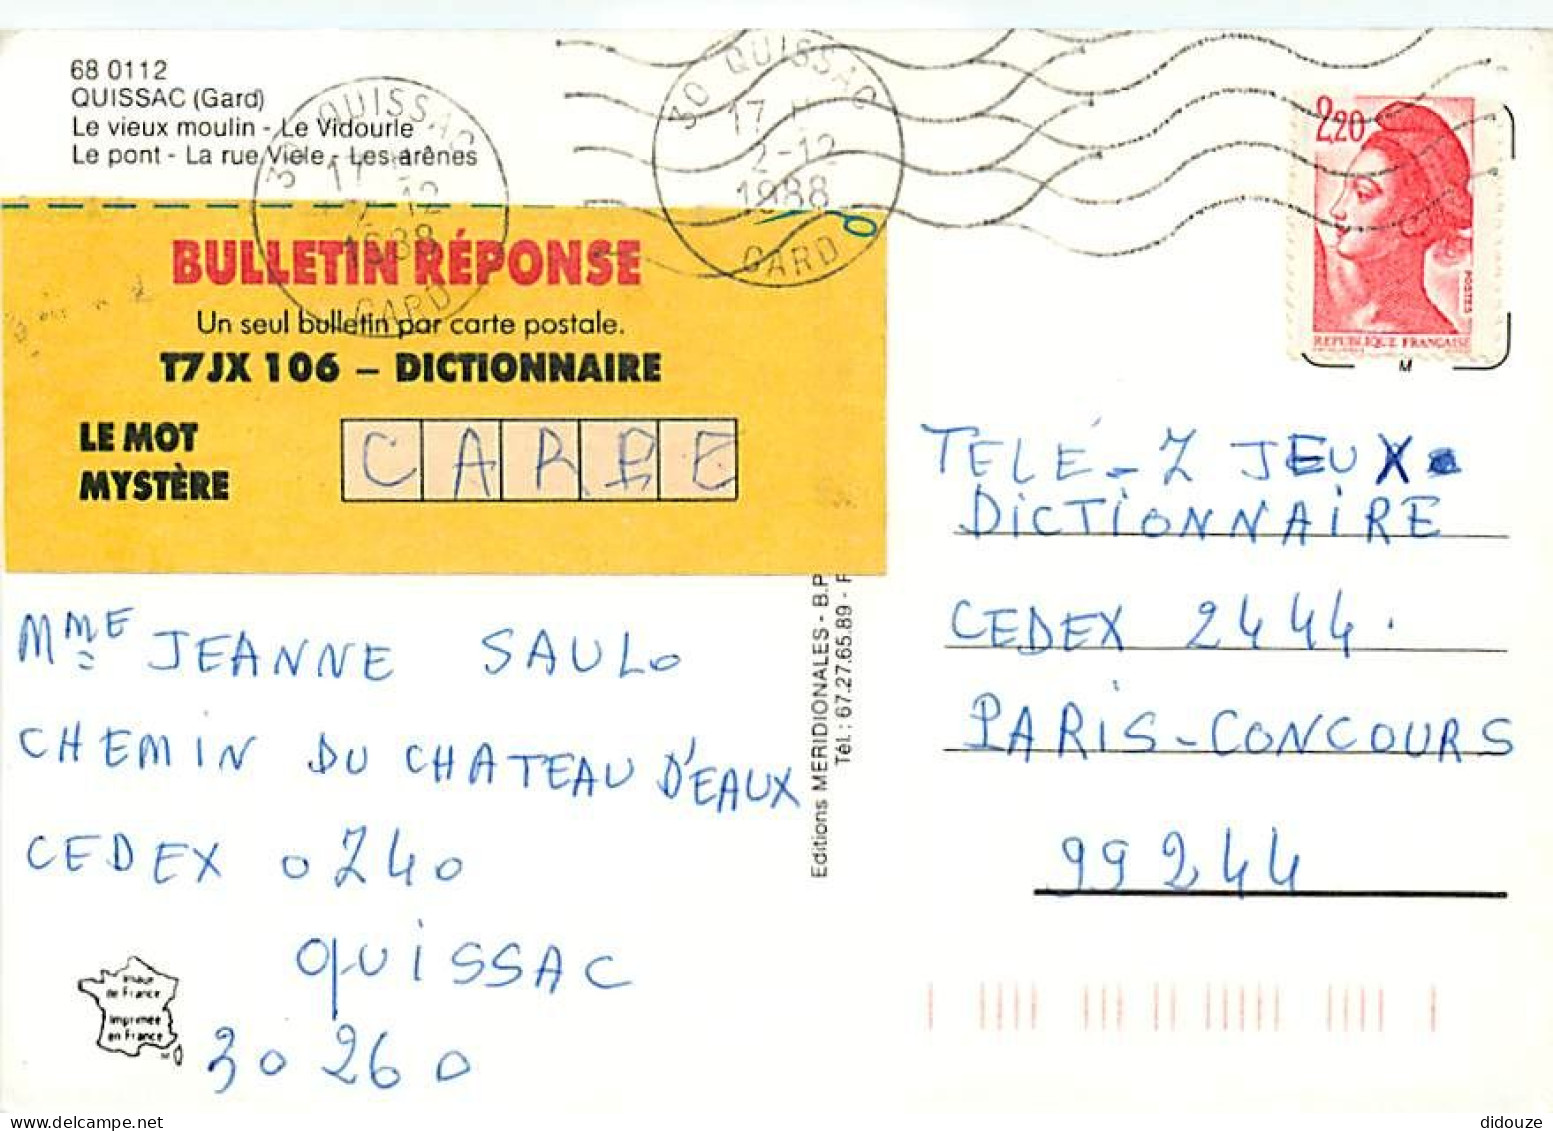 68 0112
QUISSAC (Gard)
Le vieux moulin - Le Vidourle
Le pont - La rue Viele - Les arènes
30 QUISSAC
17 H
2-12
1988
GARD
30 QUISSAC
17 H
2-12
1988
GARD
2,20
POSTES
REPUBLIQUE FRANÇAISE
M
BULLETIN RÉPONSE
Un seul bulletin par carte postale.
T7JX 106 – DICTIONNAIRE
LE MOT
MYSTÈRE
CARRE
TELÉ-Z JEUX
DICTIONNAIRE
CEDEX 2444.
PARIS-CONCOURS
99244
MME JEANNE SAULO
CHEMIN DU CHATEAU D'EAUX
CEDEX 0240
QUISSAC
30260
Editions MERIDIONALES - B.P
Tél.: 67.27.65.89 - F
Image
de France
Imprimée
en France
didouze